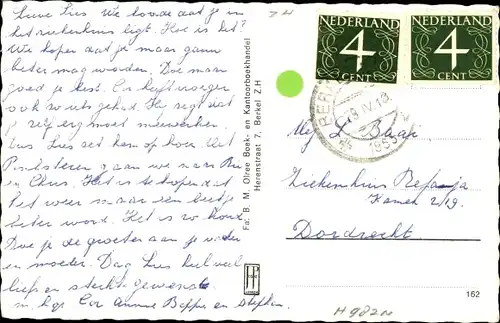 Lieve Lies We hoorde dat je in
het ziekenhuis ligt. Hoe is het?
We hopen dat je maar gauw
beter mag worden. Doe maar
goed je best. Cor heeft vroeger
ook zoiets gehad. Hij zegt dat
je zelf erg moet meewerken.
Dus Lies zet hem op hoor. Met
Pinksteren gaan we naar
en Chris. Het is te hopen dat
het weer maar een beetje
beter word. Het is zo koud
Doe je de groeten aan je vader
en moeder. Dag Lies heel veel
liefs en sterkte gewenst
Cor Annie Beppie en Stephan.
Fa. B. M. Olree Boek- en Kantoorboekhandel
Herenstraat 7, Berkel Z.H
NEDERLAND
4
CENT
NEDERLAND
4
CENT
Mej L. Blaak
Ziekenhuis Refaja
Kamer 219.
Dordrecht
162